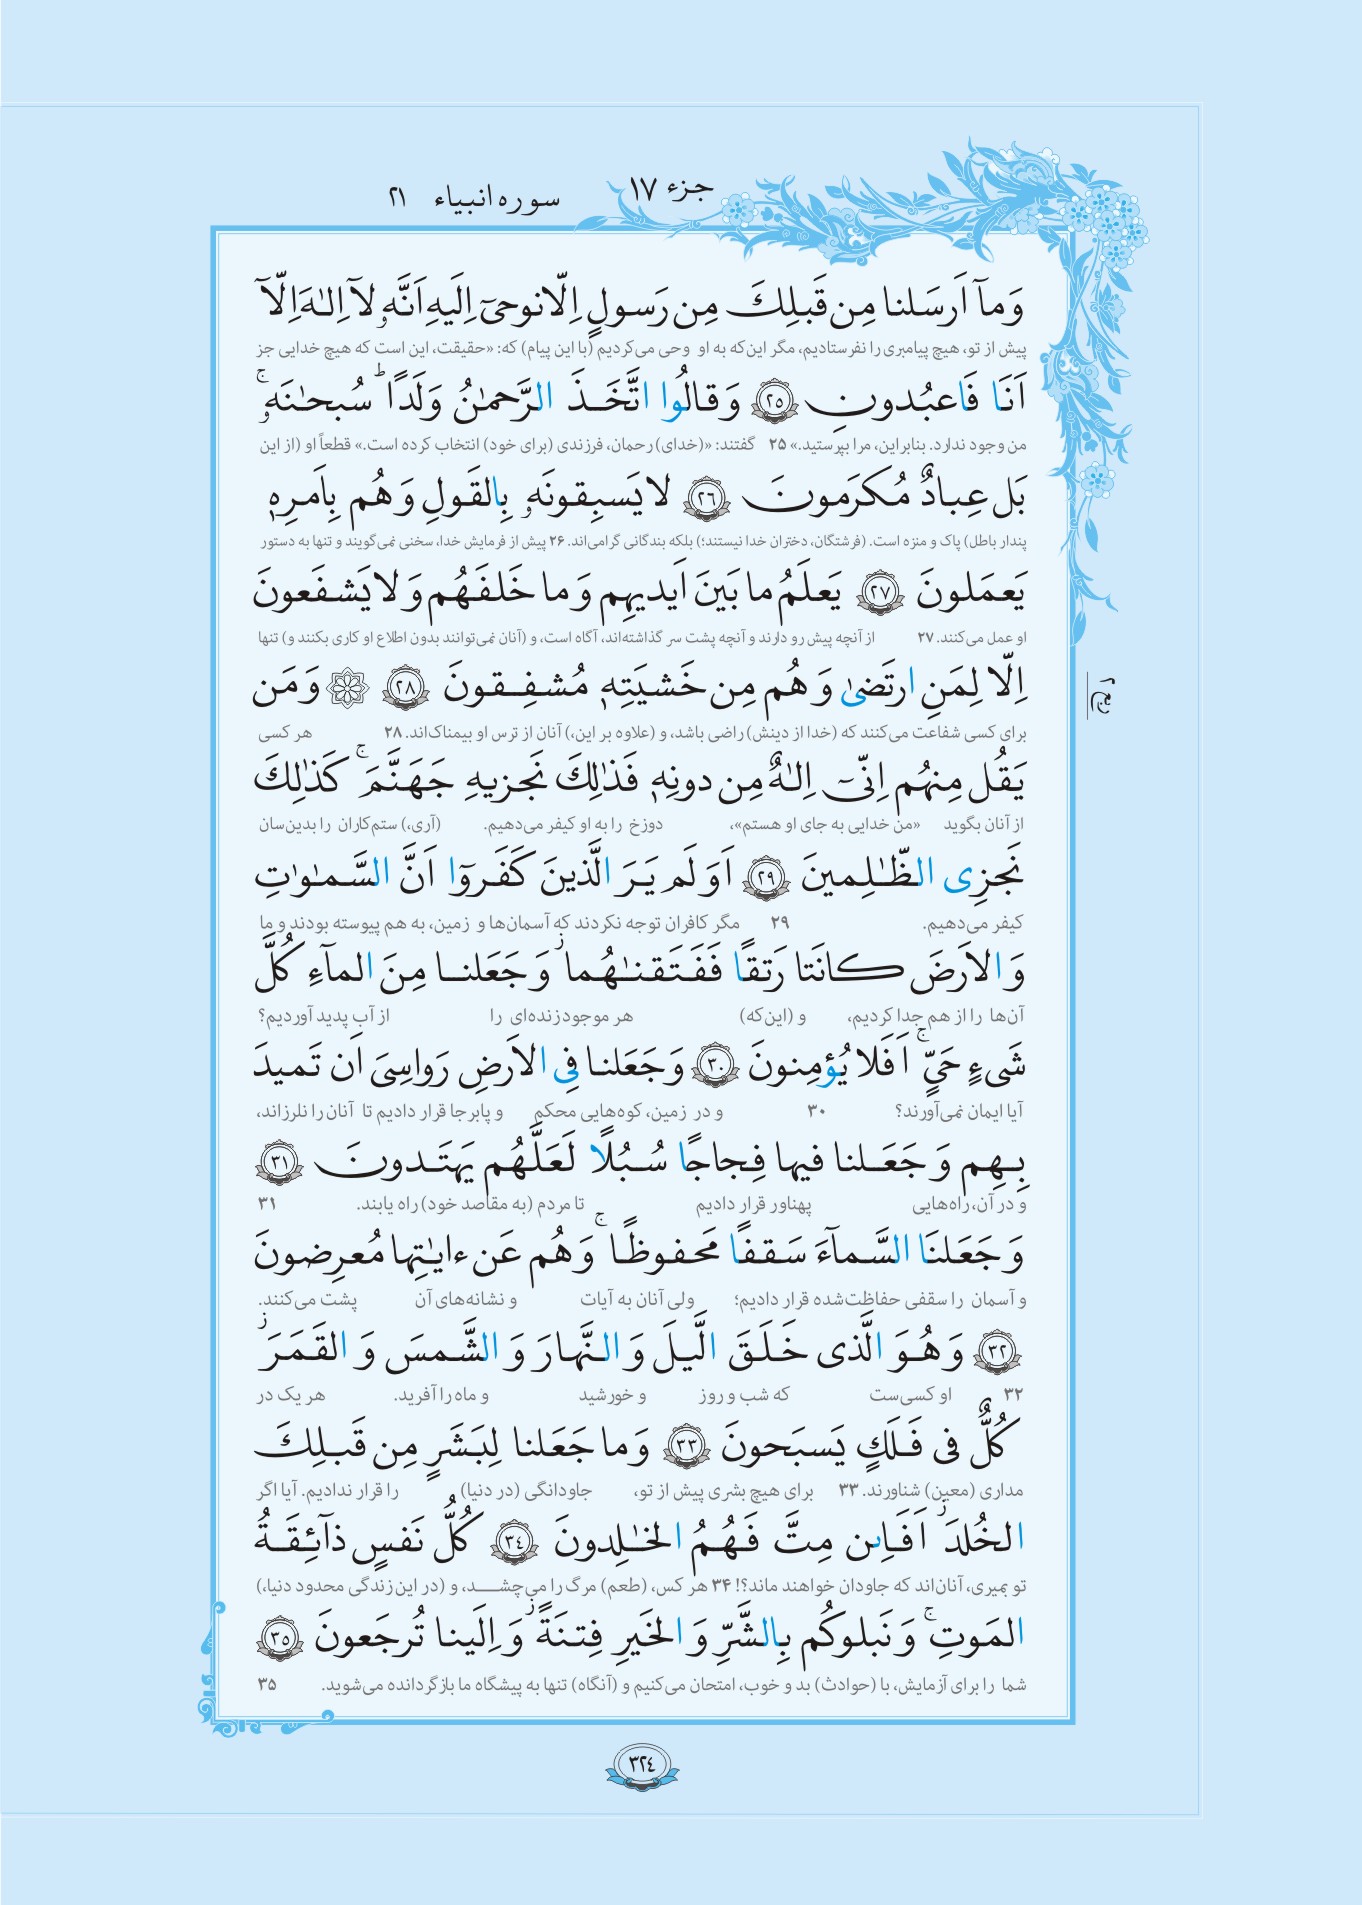 جزء ۱۷
سوره انبیاء ۲۱
وَمآ اَرسَلنا مِن قَبلِكَ مِن رَسولٍ اِلّا نوحىٓ اِلَيهِ اَنَّهٗ لآ اِلٰهَ اِلّآ
پیش از تو، هیچ پیامبری را نفرستادیم، مگر این‌که به او وحی می‌کردیم (با این پیام) که: «حقیقت، این است که هیچ خدایی جز
اَنَا فَاعبُدونِ ﴿٢٥﴾ وَقالُوا اتَّخَذَ الرَّحمٰنُ وَلَدًا ؕ سُبحٰنَهٗ ۚ
من وجود ندارد. بنابراین، مرا بپرستید.» ۲۵ گفتند: «(خدای) رحمان، فرزندی (برای خود) انتخاب کرده است.» قطعاً او (از این
بَل عِبادٌ مُكرَمونَ ﴿٢٦﴾ لا يَسبِقونَهٗ بِالقَولِ وَهُم بِاَمرِهٖ
پندار باطل) پاک و منزه است. (فرشتگان، دختران خدا نیستند؛) بلکه بندگانی گرامی‌اند. ۲۶ پیش از فرمایش خدا، سخنی نمی‌گویند و تنها به دستور
يَعمَلونَ ﴿٢٧﴾ يَعلَمُ ما بَينَ اَيديهِم وَما خَلفَهُم وَلا يَشفَعونَ
او عمل می‌کنند. ۲۷ از آنچه پیش رو دارند و آنچه پشت سر گذاشته‌اند، آگاه است، و (آنان نمی‌توانند بدون اطلاع او کاری بکنند و) تنها
اِلّا لِمَنِ ارتَضىٰ وَهُم مِن خَشيَتِهٖ مُشفِقونَ ﴿٢٨﴾ ۞ وَمَن
ربع ۲
برای کسی شفاعت می‌کنند که (خدا از دینش) راضی باشد، و (علاوه بر این،) آنان از ترس او بیمناک‌اند. ۲۸ هر کسی
يَقُل مِنهُم اِنّىٓ اِلٰهٌ مِن دونِهٖ فَذٰلِكَ نَجزيهِ جَهَنَّمَ ۚ كَذٰلِكَ
از آنان بگوید «من خدایی به جای او هستم»، دوزخ را به او کیفر می‌دهیم. (آری،) ستم‌کاران را بدین‌سان
نَجزِى الظّٰلِمينَ ﴿٢٩﴾ اَوَلَم يَرَ الَّذينَ كَفَروٓا اَنَّ السَّمٰوٰتِ
کیفر می‌دهیم. ۲۹ مگر کافران توجه نکردند که آسمان‌ها و زمین، به هم پیوسته بودند و ما
وَالاَرضَ كانَتا رَتقًا فَفَتَقنٰهُما ؗ وَجَعَلنا مِنَ المآءِ كُلَّ
آن‌ها را از هم جدا کردیم، و (این‌که) هر موجود زنده‌ای را از آب پدید آوردیم؟
شَىءٍ حَىٍّ ۚ اَفَلا يُؤمِنونَ ﴿٣٠﴾ وَجَعَلنا فِى الاَرضِ رَواسِىَ اَن تَميدَ
آیا ایمان نمی‌آورند؟ ۳۰ و در زمین، کوه‌هایی محکم و پابرجا قرار دادیم تا آنان را نلرزاند،
بِهِم وَجَعَلنا فيها فِجاجًا سُبُلًا لَعَلَّهُم يَهتَدونَ ﴿٣١﴾
و در آن، راه‌هایی پهناور قرار دادیم تا مردم (به مقاصد خود) راه یابند. ۳۱
وَجَعَلنَا السَّمآءَ سَقفًا مَحفوظًا ۚ وَهُم عَن ءايٰتِها مُعرِضونَ
و آسمان را سقفی حفاظت‌شده قرار دادیم؛ ولی آنان به آیات و نشانه‌های آن پشت می‌کنند.
﴿٣٢﴾ وَهُوَ الَّذى خَلَقَ الَّيلَ وَالنَّهارَ وَالشَّمسَ وَالقَمَرَ ؗ
۳۲ او کسی‌ست که شب و روز و خورشید و ماه را آفرید. هر یک در
كُلٌّ فى فَلَكٍ يَسبَحونَ ﴿٣٣﴾ وَما جَعَلنا لِبَشَرٍ مِن قَبلِكَ
مداری (معین) شناورند. ۳۳ برای هیچ بشری پیش از تو، جاودانگی (در دنیا) را قرار ندادیم. آیا اگر
الخُلدَ ؗ اَفَا۟ئِن مِتَّ فَهُمُ الخٰلِدونَ ﴿٣٤﴾ كُلُّ نَفسٍ ذآئِقَةُ
تو بمیری، آنان‌اند که جاودان خواهند ماند؟! ۳۴ هر کس، (طعم) مرگ را می‌چشد، و (در این زندگی محدود دنیا،)
المَوتِ ۚ وَنَبلوكُم بِالشَّرِّ وَالخَيرِ فِتنَةً ؗ وَاِلَينا تُرجَعونَ ﴿٣٥﴾
شما را برای آزمایش، با (حوادث) بد و خوب، امتحان می‌کنیم و (آنگاه) تنها به پیشگاه ما بازگردانده می‌شوید. ۳۵
۳۲۴